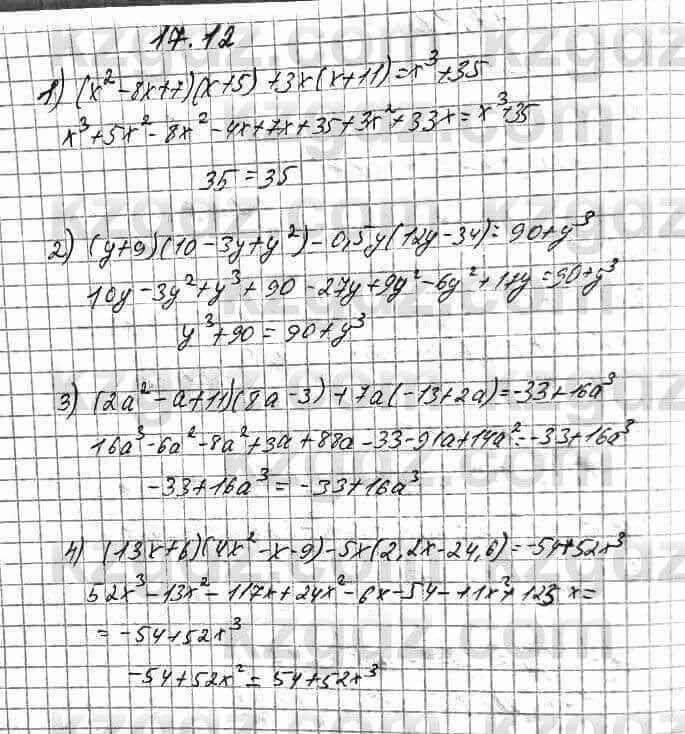 17.12
1) (x² - 8x+7)(x+5) + 3x(x+11) = x³+35
x³+5x² - 8x² - 4x+7x+35+3x²+33x = x³+35
35 = 35
2) (y+9)(10-3y+y²) - 0,5y(12y-34) = 90+y³
10y-3y²+y³+90-27y+9y²-6y²+17y=90+y³
y³+90 = 90+y³
3) (2a²-a+11)(8a-3)+7a(-13+2a)=-33+16a³
16a³-6a²-8a²+3a+88a-33-91a+14a²=-33+16a³
-33+16a³ = -33+16a³
4) (13x+6)(4x²-x-9)-5x(2,2x-24,6)=-54+52x³
52x³-13x²-117x+24x²-6x-54-11x²+123x=
= -54+52x³
-54+52x² = 54+52x³